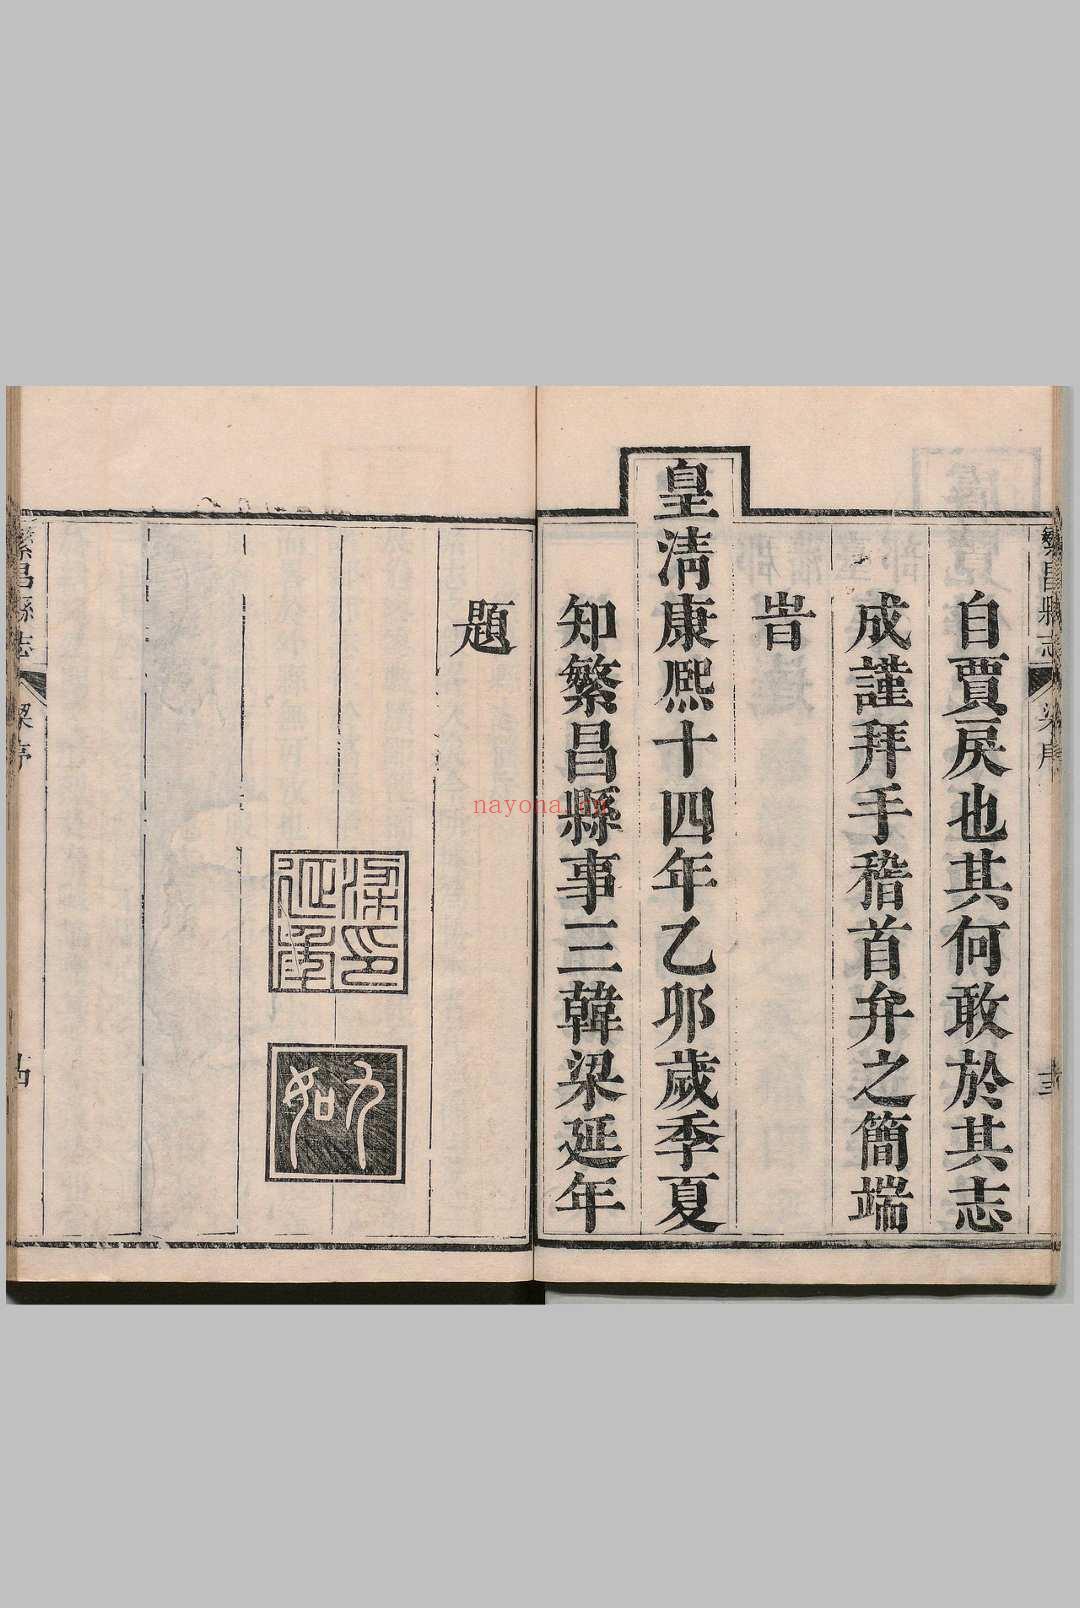 繁昌縣志
梁序
十三
自賈戾也其何敢於其志
成謹拜手稽首弁之簡端
旹
皇淸康熙十四年乙夘歲季夏
知繁昌縣事三韓梁延年
題
梁延年印
九如
繁昌縣志
梁序
十四